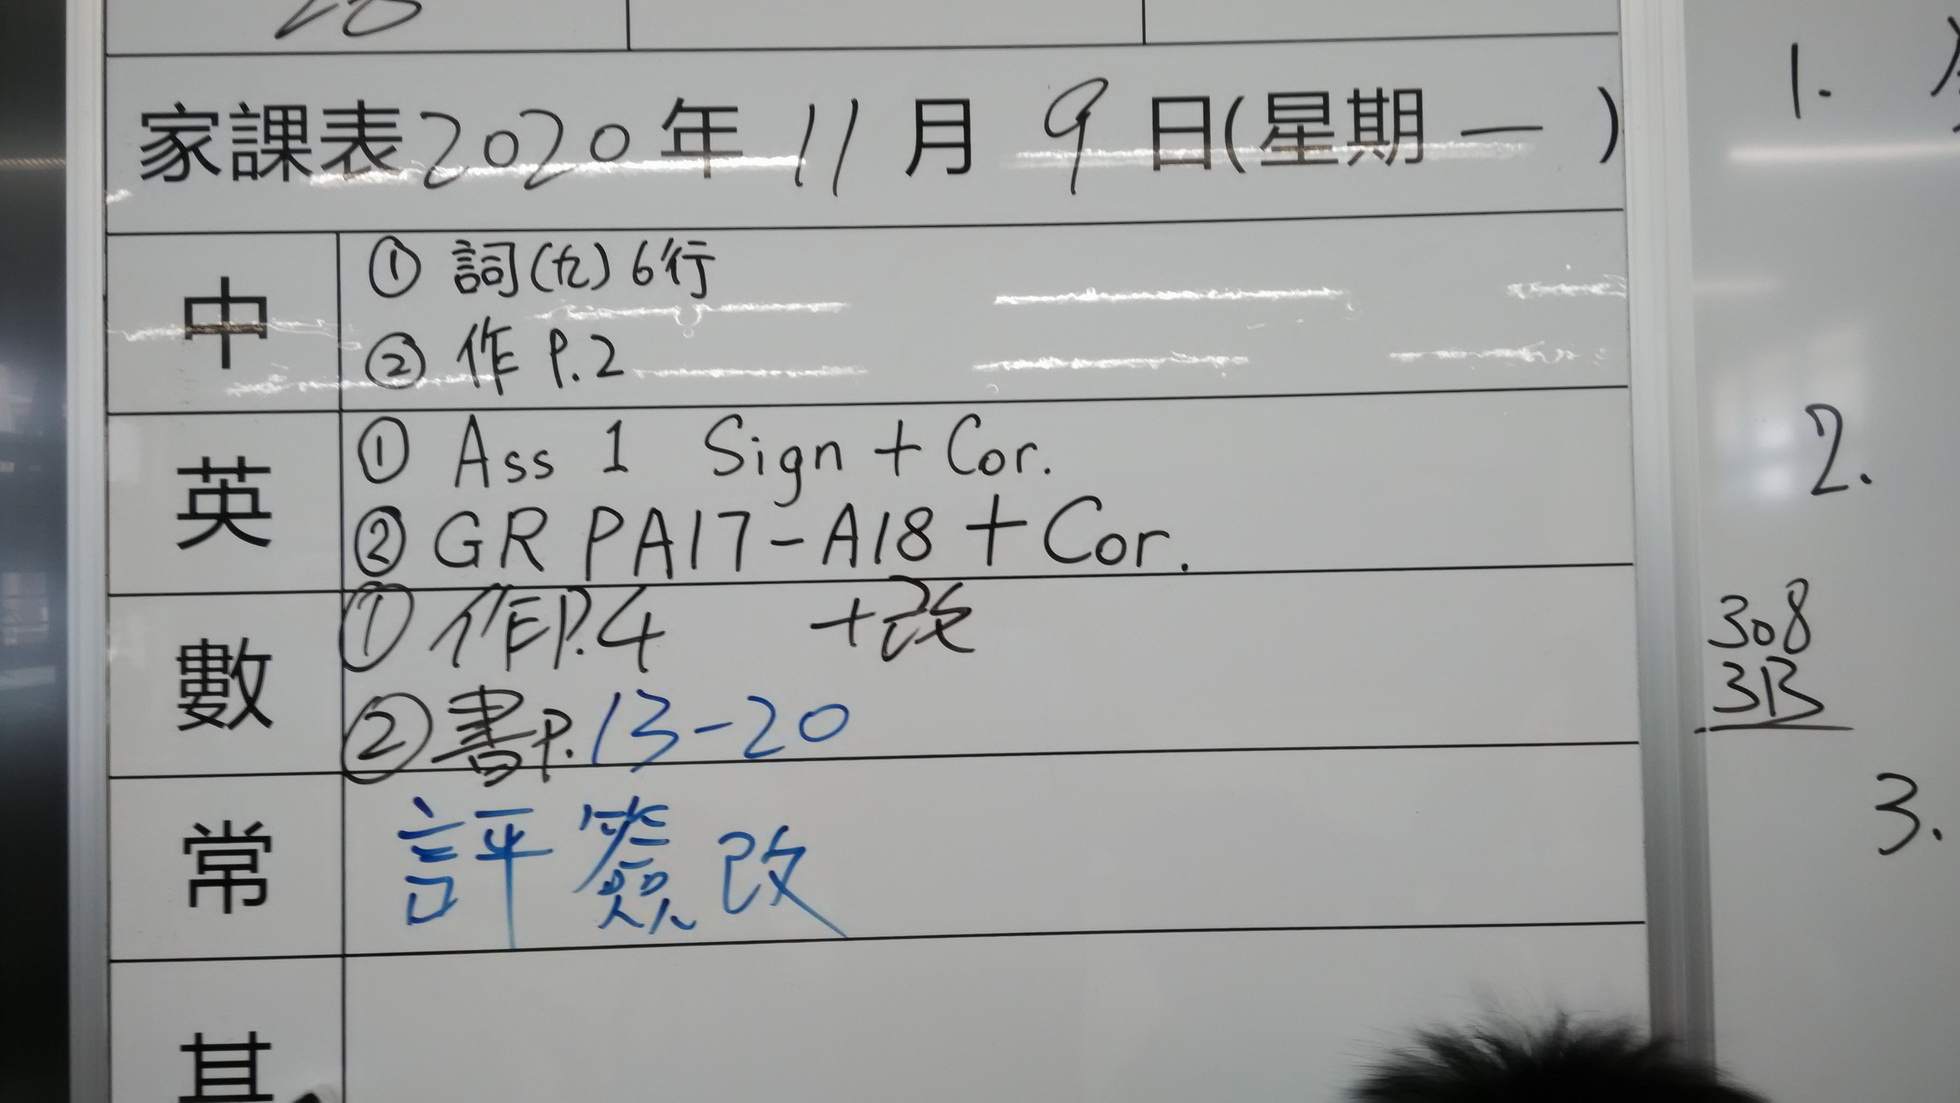 家課表2020年11月9日(星期一)
中
① 詞(九)6行
② 作 P.2
英
① Ass 1 Sign + Cor.
② GR PA17-A18 + Cor.
數
① 作P.4 +改
② 書P.13-20
常
評簽改
1.
2.
308
3B
3.